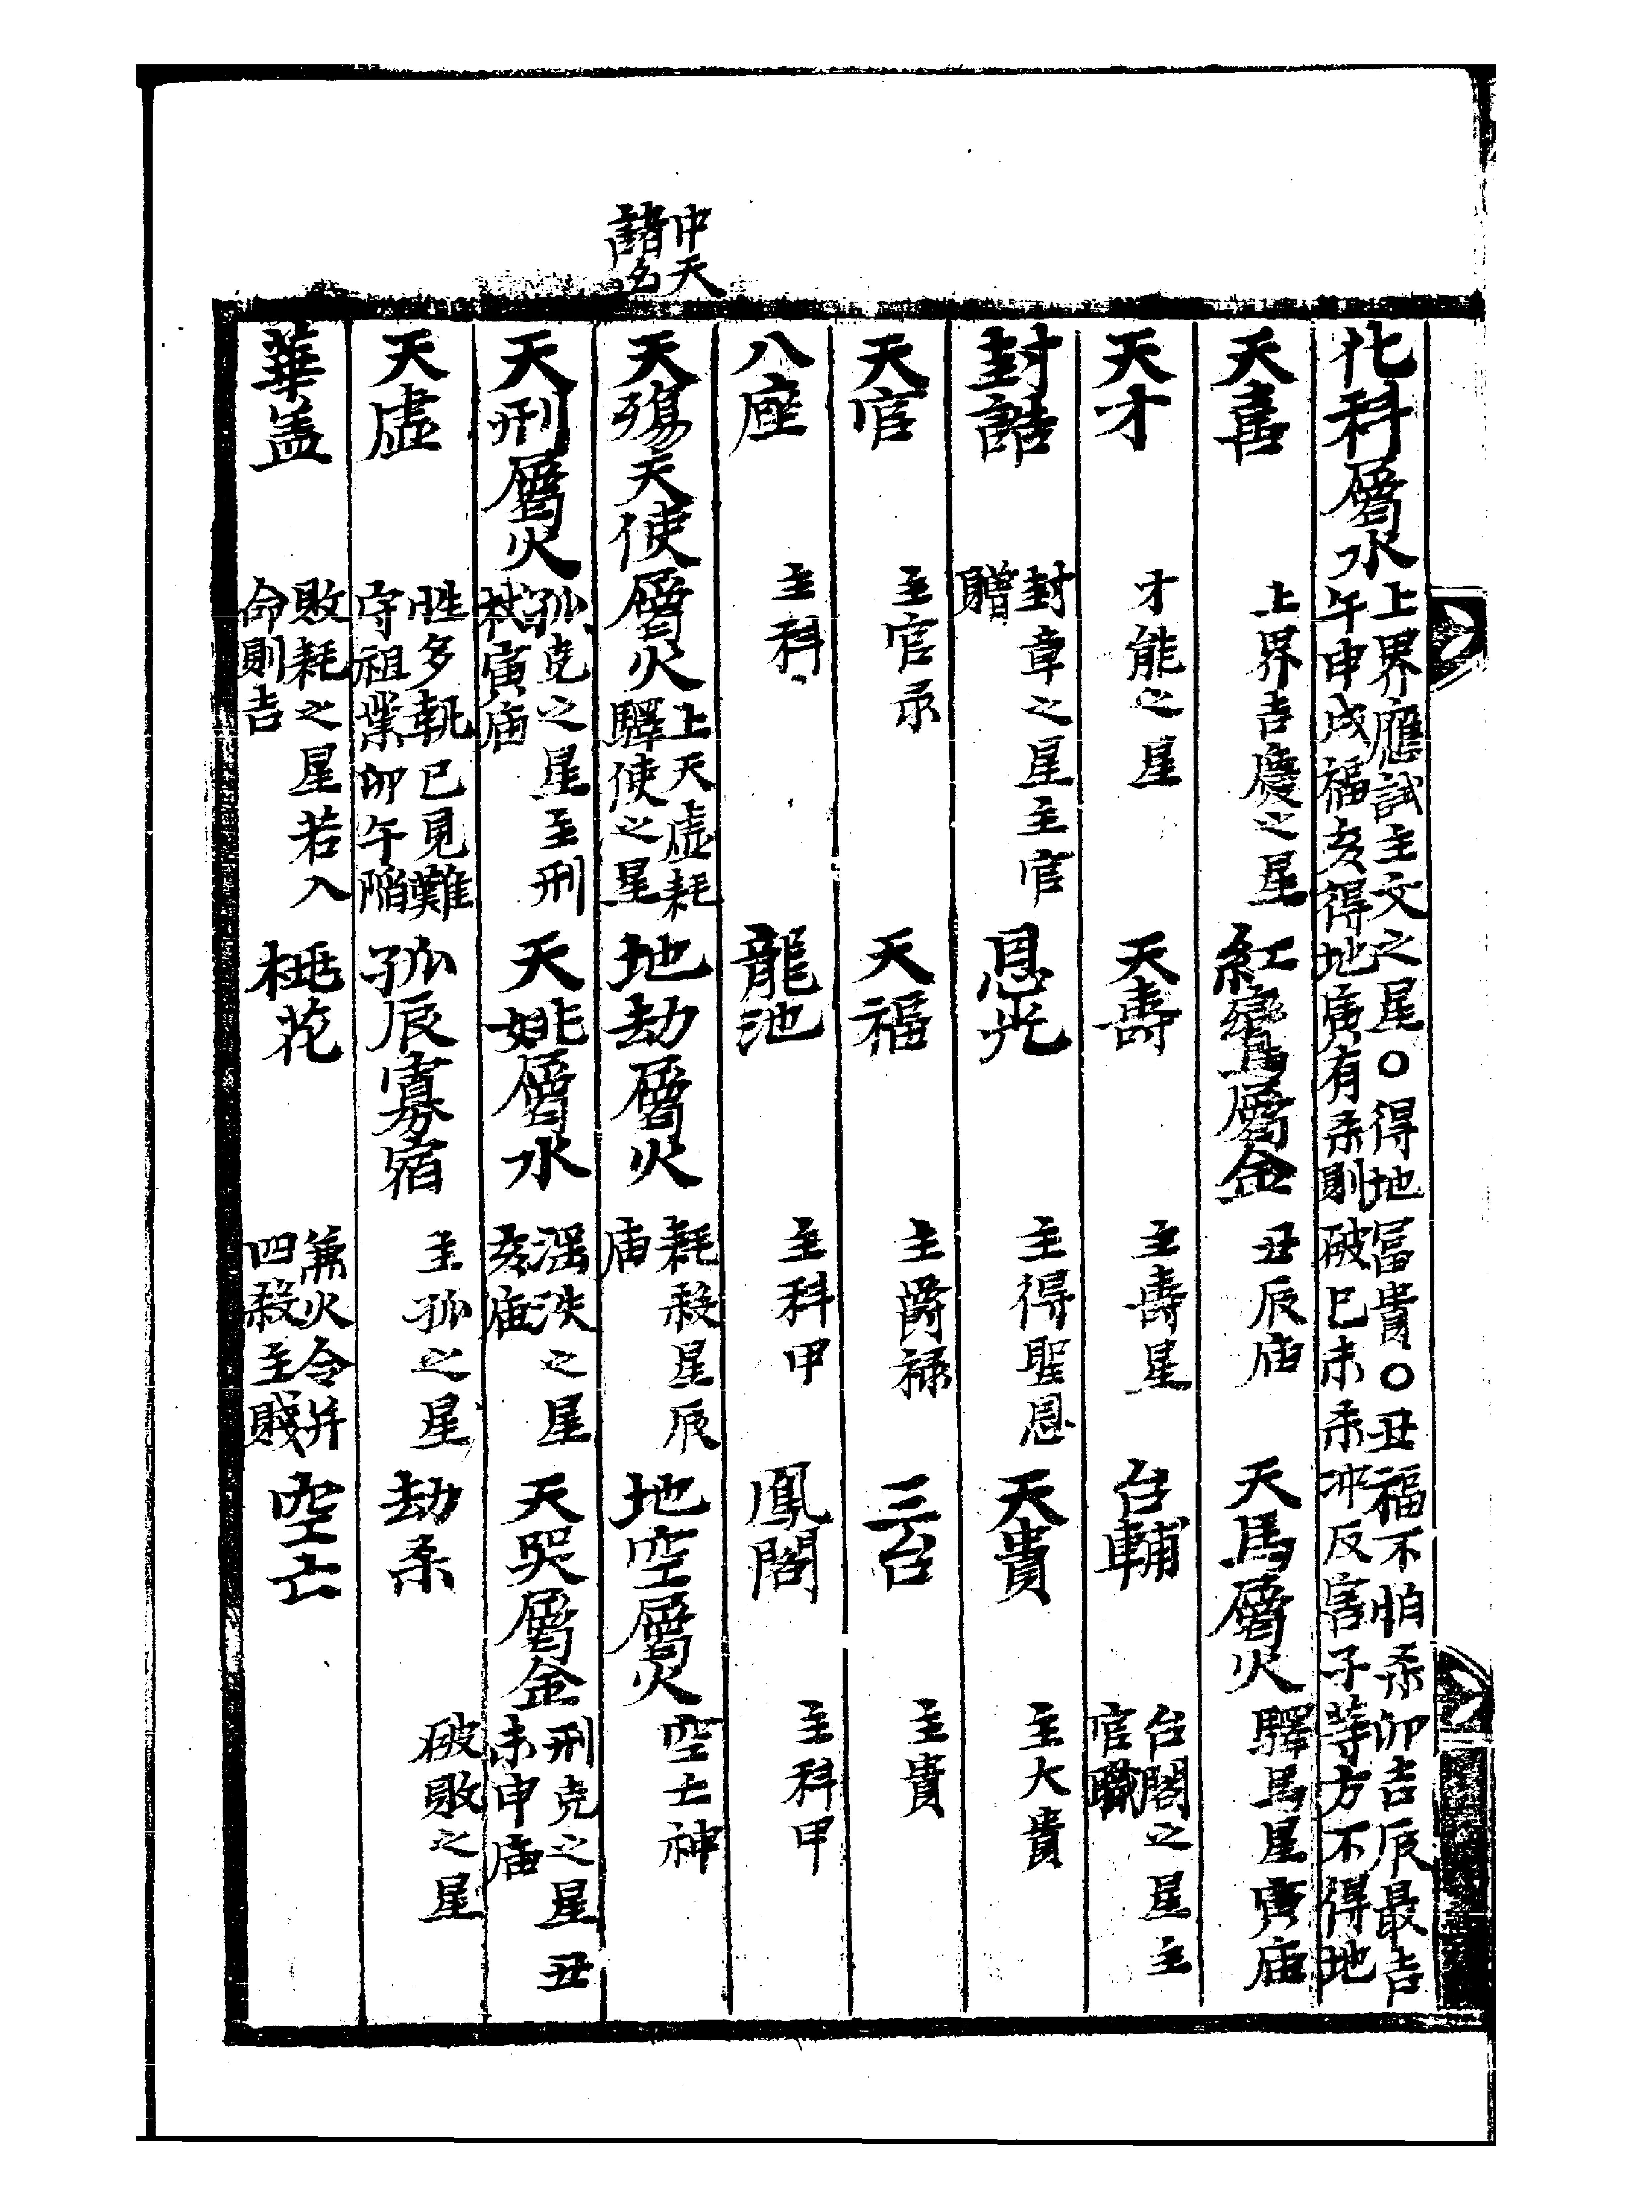 中天
諸名
化科屬水 上界應試主文之星○得地富貴○丑福不怕杀卯吉辰最吉
午申戌福亥得地寅有杀則破巳未杀冲反害子等方不得地
天喜 上界吉慶之星 紅鸞屬金 丑辰庙 天馬屬火 驛馬星寅庙
天才 才能之星 天壽 主壽星 台輔 台閣之星主官職
封誥 封章之星主官贈 恩光 主得聖恩 天貴 主大貴
天官 主官录 天福 主爵祿 三台 主貴
八座 主科 龍池 主科甲 鳳閣 主科甲
天殤天使屬火 上天虛耗驛使之星 地劫屬火 耗殺星辰庙 地空屬火 空亡神
天刑屬火 孤克之星主刑寅庙 天姚屬水 淫泆之星亥庙 天哭屬金 刑克之星丑未申庙
天虛 性多執已見難守祖業卯午陷 孤辰寡宿 主孤之星 劫杀 破敗之星
華盖 敗耗之星若入命則吉 桃花 兼火令并四殺主賤 空亡